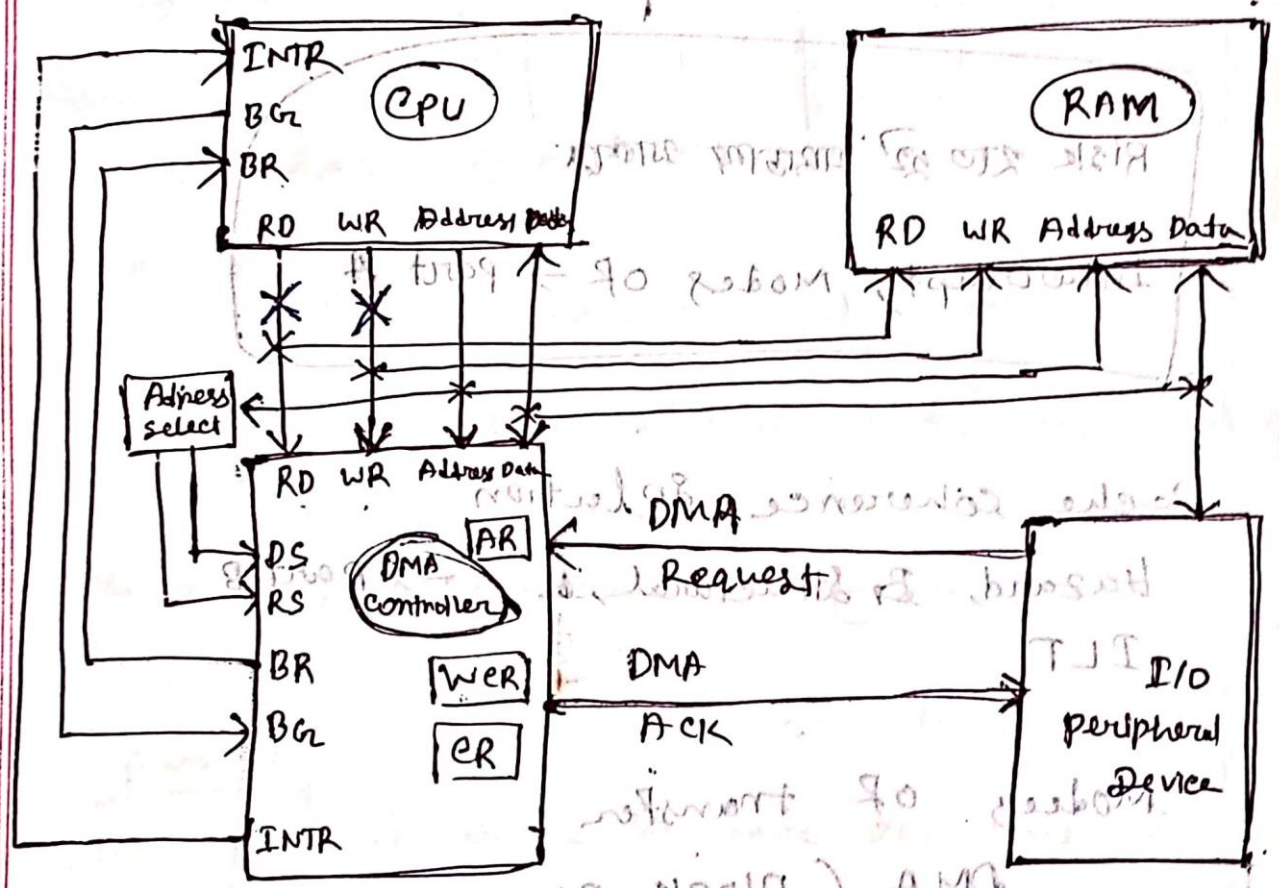 INTR
CPU
BG
BR
RD WR Address Data
RAM
RD WR Address Data
Adress
select
RD WR Address Data
DS
RS
BR
BG
INTR
AR
DMA
Controller
WCR
CR
DMA
Request
DMA
ACK
I/O
Peripheral
Device